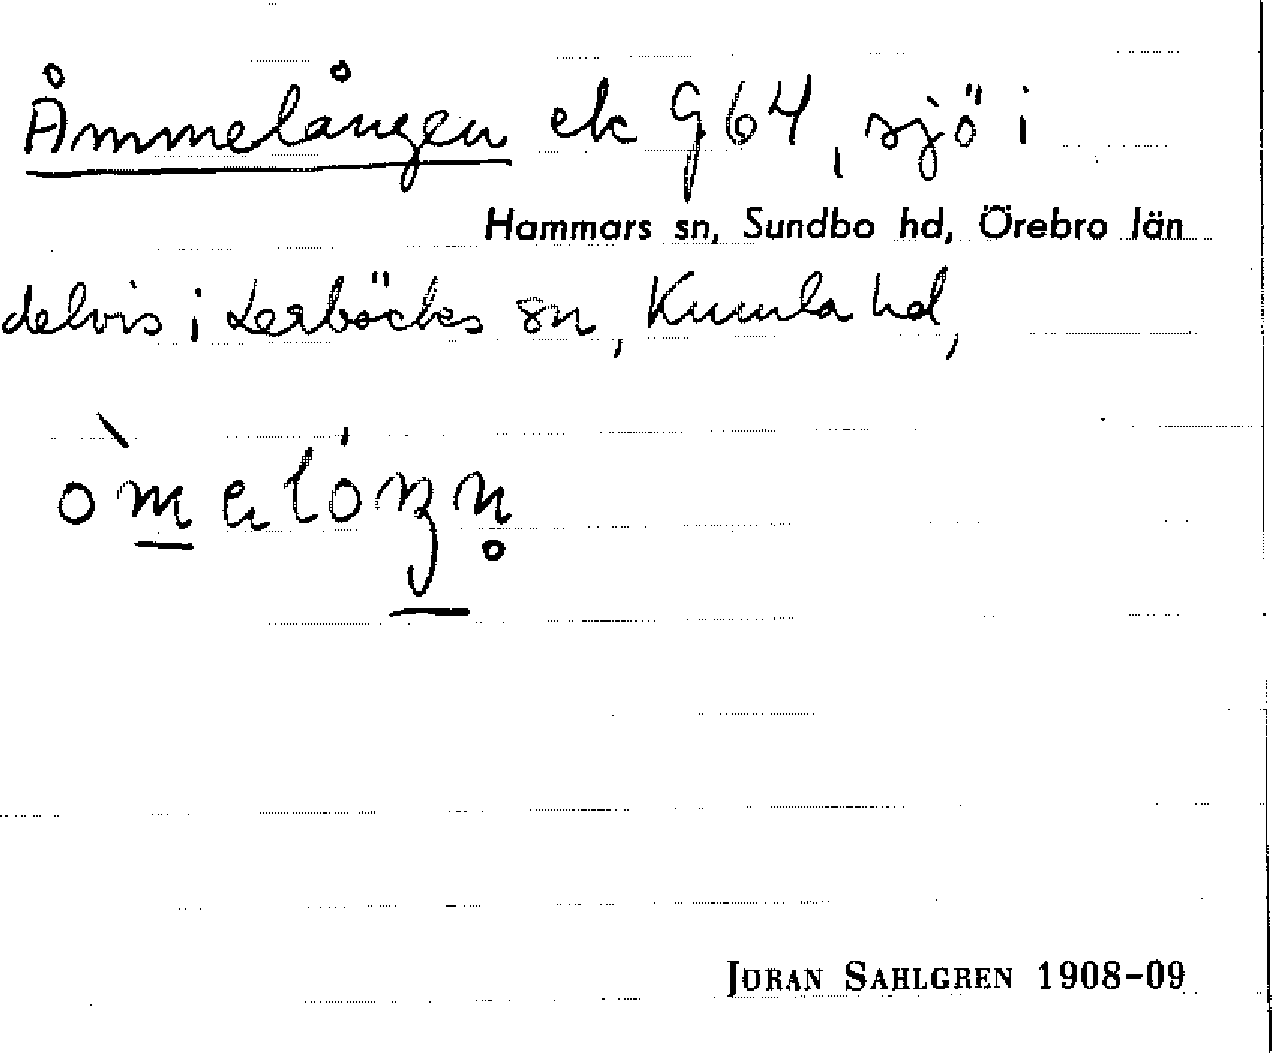 Åmmelången ek G64, sjö i
Hammars sn, Sundbo hd, Örebro län
delvis i Lerbäcks sn, Kumla hd,
JÖRAN SAHLGREN 1908-09